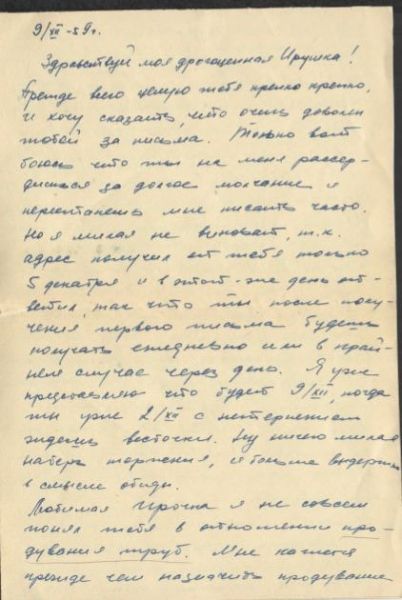 9/XII - 59г.
Здравствуй моя драгоценная Ирушка!
Прежде всего целую тебя крепко крепко,
и хочу сказать, что очень доволен
тобой за письма. Только вот
боюсь что ты на меня рассер-
дишься за долгое молчание и
перестанешь мне писать часто.
Но я милая не виноват, т.к.
адрес получил от тебя только
5 декабря и в этот-же день от-
ветил, так что ты после полу-
чения первого письма будешь
получать ежедневно или в край-
нем случае через день. Я уже
представляю что будет 9/XII, когда
ты уже 2/XII с нетерпением
ждешь весточки. Ну ничего милая
наберись терпения, и больше выдержки
в смысле обиды.
Любимая Ирочка я не совсем
понял тебя в отношении про-
дувания труб. Мне кажется
прежде чем назначить продувание